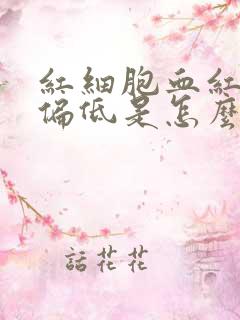 紅細胞血紅
偏低是怎麼
話花花